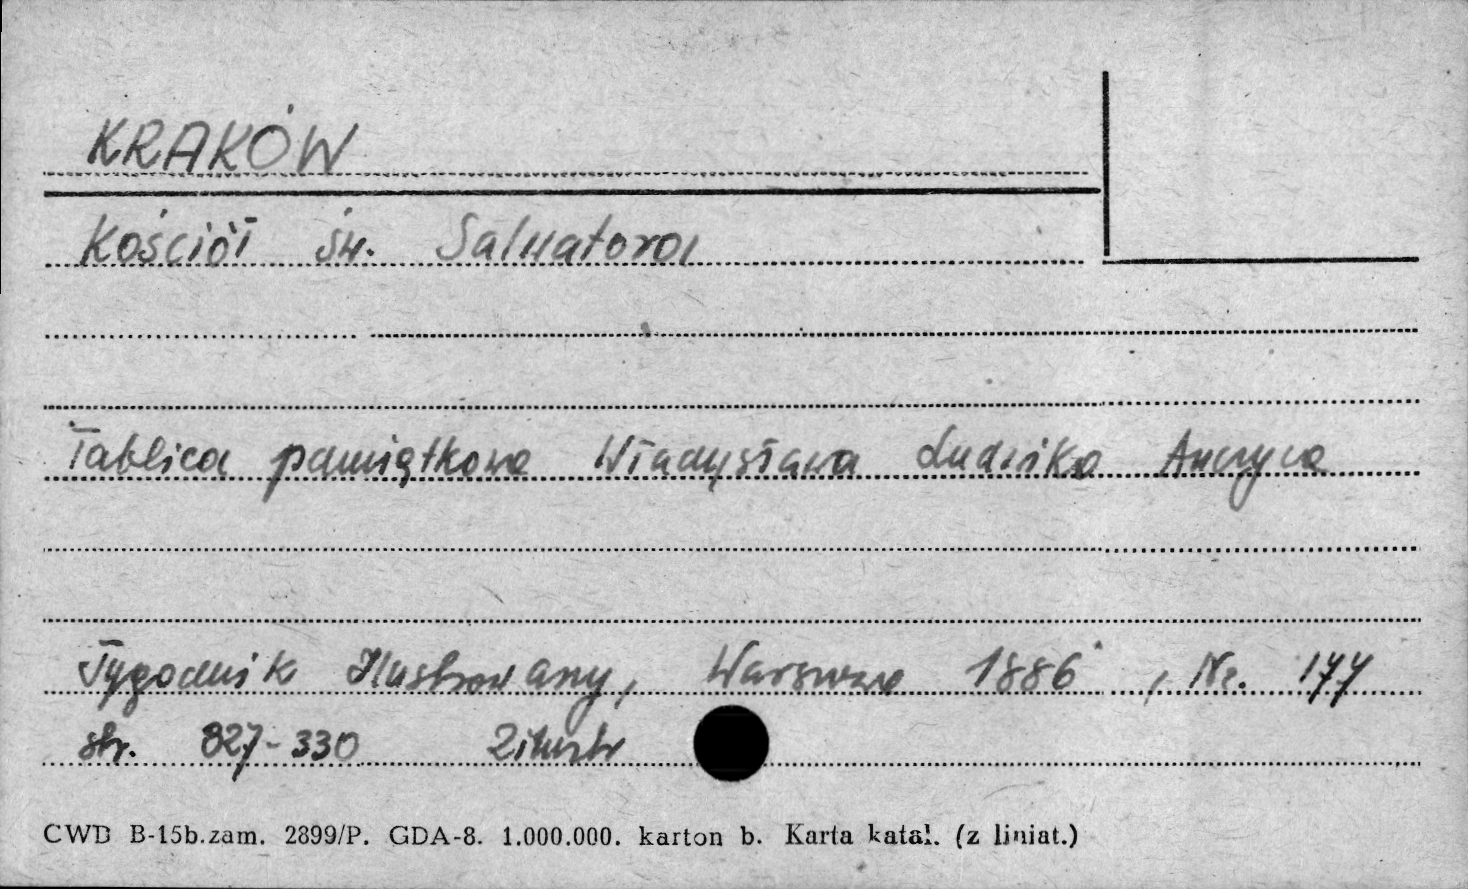 KRAKÓW
Kościół św. Salwatora
Tablica pamiątkowa Władysława Ludwika Anczyca
Tygodnik Ilustrowany, Warszawa 1886, Nr. 177
str. 327-330 2 ilustr
CWD B-15b.zam. 2899/P. GDA-8. 1.000.000. karton b. Karta katal. (z liniat.)